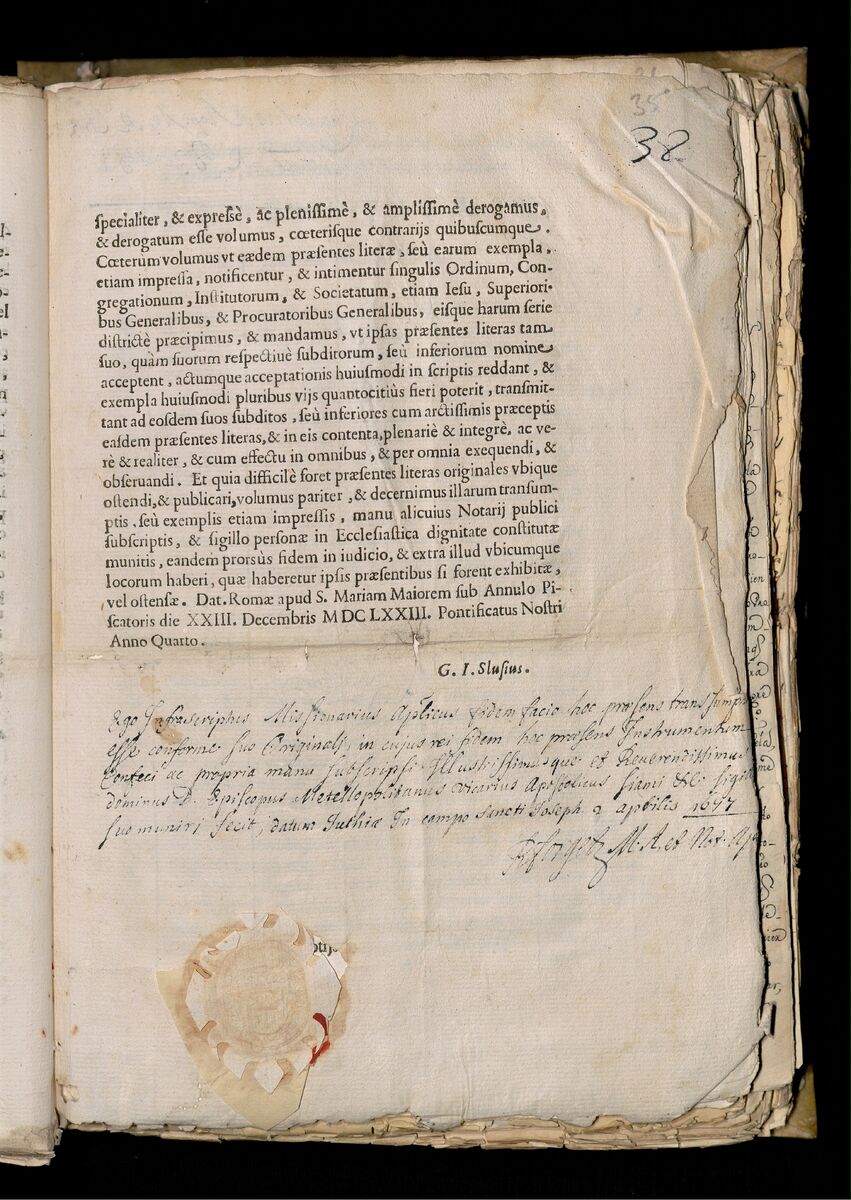 35
38
specialiter, & expressè, ac plenissimè, & amplissimè derogamus,
& derogatum esse volumus, cœterisque contrarijs quibuscumque.
Cœterùm volumus vt eædem præsentes literæ, seù earum exempla,
etiam impressa, notificentur, & intimentur singulis Ordinum, Con-
gregationum, Institutorum, & Societatum, etiam Iesu, Superiori-
bus Generalibus, & Procuratoribus Generalibus, eisque harum serie
districtè præcipimus, & mandamus, vt ipsas præsentes literas tam
suo, quàm suorum respectiuè subditorum, seù inferiorum nomine
acceptent, actumque acceptationis huiusmodi in scriptis reddant, &
exempla huiusmodi pluribus vijs quantocitiùs fieri poterit, transmit-
tant ad eosdem suos subditos, seù inferiores cum arctissimis præceptis
easdem præsentes literas, & in eis contenta, plenariè & integrè, ac ve-
rè & realiter, & cum effectu in omnibus, & per omnia exequendi, &
obseruandi. Et quia difficilè foret præsentes literas originales vbique
ostendi, & publicari, volumus pariter, & decernimus illarum transum-
ptis, seù exemplis etiam impressis, manu alicuius Notarij publici
subscriptis, & sigillo personæ in Ecclesiastica dignitate constitutæ
munitis, eandem prorsùs fidem in iudicio, & extra illud vbicumque
locorum haberi, quæ haberetur ipsis præsentibus si forent exhibitæ,
vel ostensæ. Dat. Romæ apud S. Mariam Maiorem sub Annulo Pi-
scatoris die XXIII. Decembris M DC LXXIII. Pontificatus Nostri
Anno Quarto.
G. I. Slusius.
Ego Infrascriptus Missionarius Aplicus fidem facio hoc præsens transsumpt
esse conforme suo Originali, in cujus rei fidem hoc præsens Instrumentum
confeci ac propria manu subscripsi Illustrissimusque et Reverendissimus
dominus D. Episcopus Metellopolitanus vicarius Apostolicus Siami &c sigil
suo muniri fecit, datum Juthiæ In campo Sancti Joseph 2 aprilis 1677
M. A. et Not. Ap